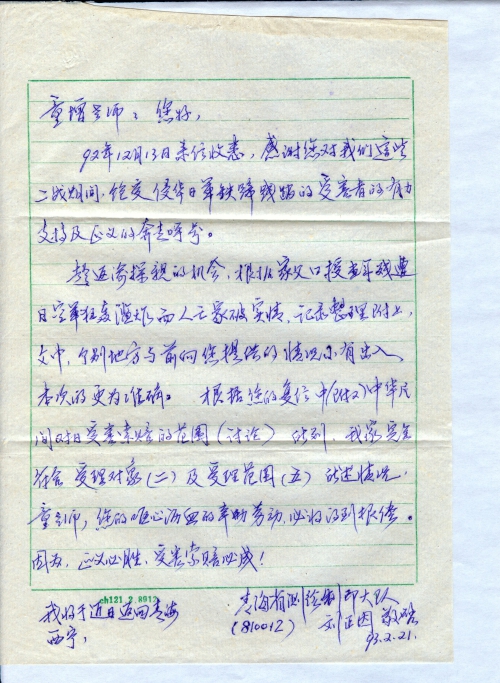 童增老师：您好，
92年12月13日来信收悉，感谢您对我们这些
二战期间，饱受侵华日军铁蹄践踏的受害者的有力
支持及正义的奔走呼号。
趁返渝探亲的机会，根据家父口授当年残遭
日寇军狂轰滥炸而人亡家破实情，记录整理附上，
文中，个别地方与前向您提供的情况小有出入，
本次的更为准确。根据您的复信中(附之)中华民
间对日受害索赔的范围(讨论)所列，我家完全
符合受理对象(二)及受理范围(五)所述情况，
童老师，您的呕心沥血的辛勤劳动，必将得到报偿。
因为，正义必胜，受害索赔必成！
ch121.2.8912
我将于近日返回青海
西宁，
青海省测绘制印大队
(810012) 刘正因 敬启
93.2.21.